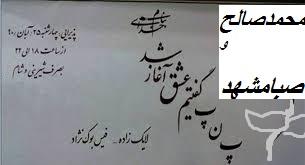 محمدصالح
و
صبامشهد
پذیرایی: چهارشنبه ۲۵ آبان ۹۰
از ساعت ۱۸ الی ۲۲
بصرف شیرینی و شام
پ ن پ گفتیم عشق آغاز شد
لایک زاده - فیس بوک نژاد